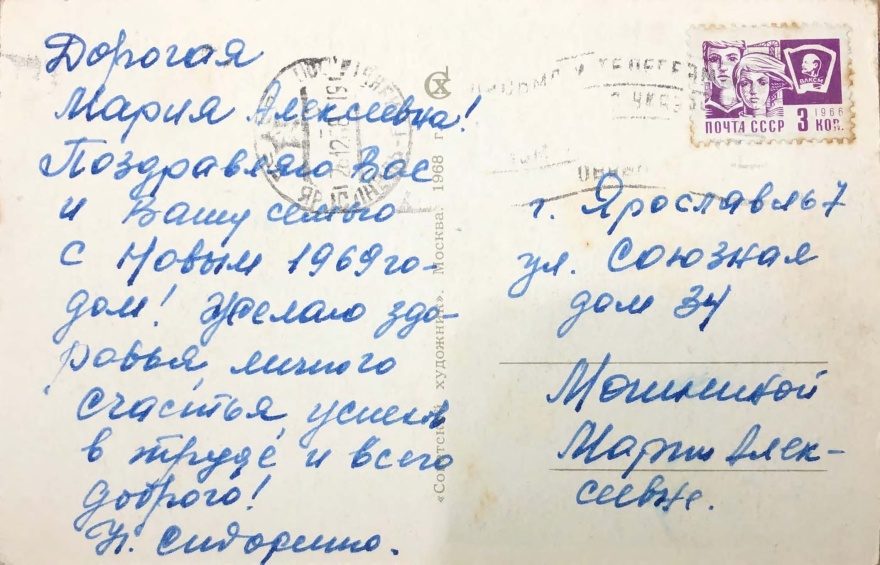 Дорогая
Мария Алексеевна!
Поздравляю Вас
и Вашу семью
с Новым 1969 го-
дом! Желаю здо-
ровья, личного
счастья, успехов
в труде и всего
доброго!
Н. Сидорина.
«Советский художник». Москва. 1968 г.
ВЛКСМ
1966
ПОЧТА СССР 3 КОП.
г. Ярославль 7
ул. Союзная
дом 34
Марии Алек-
сеевне.